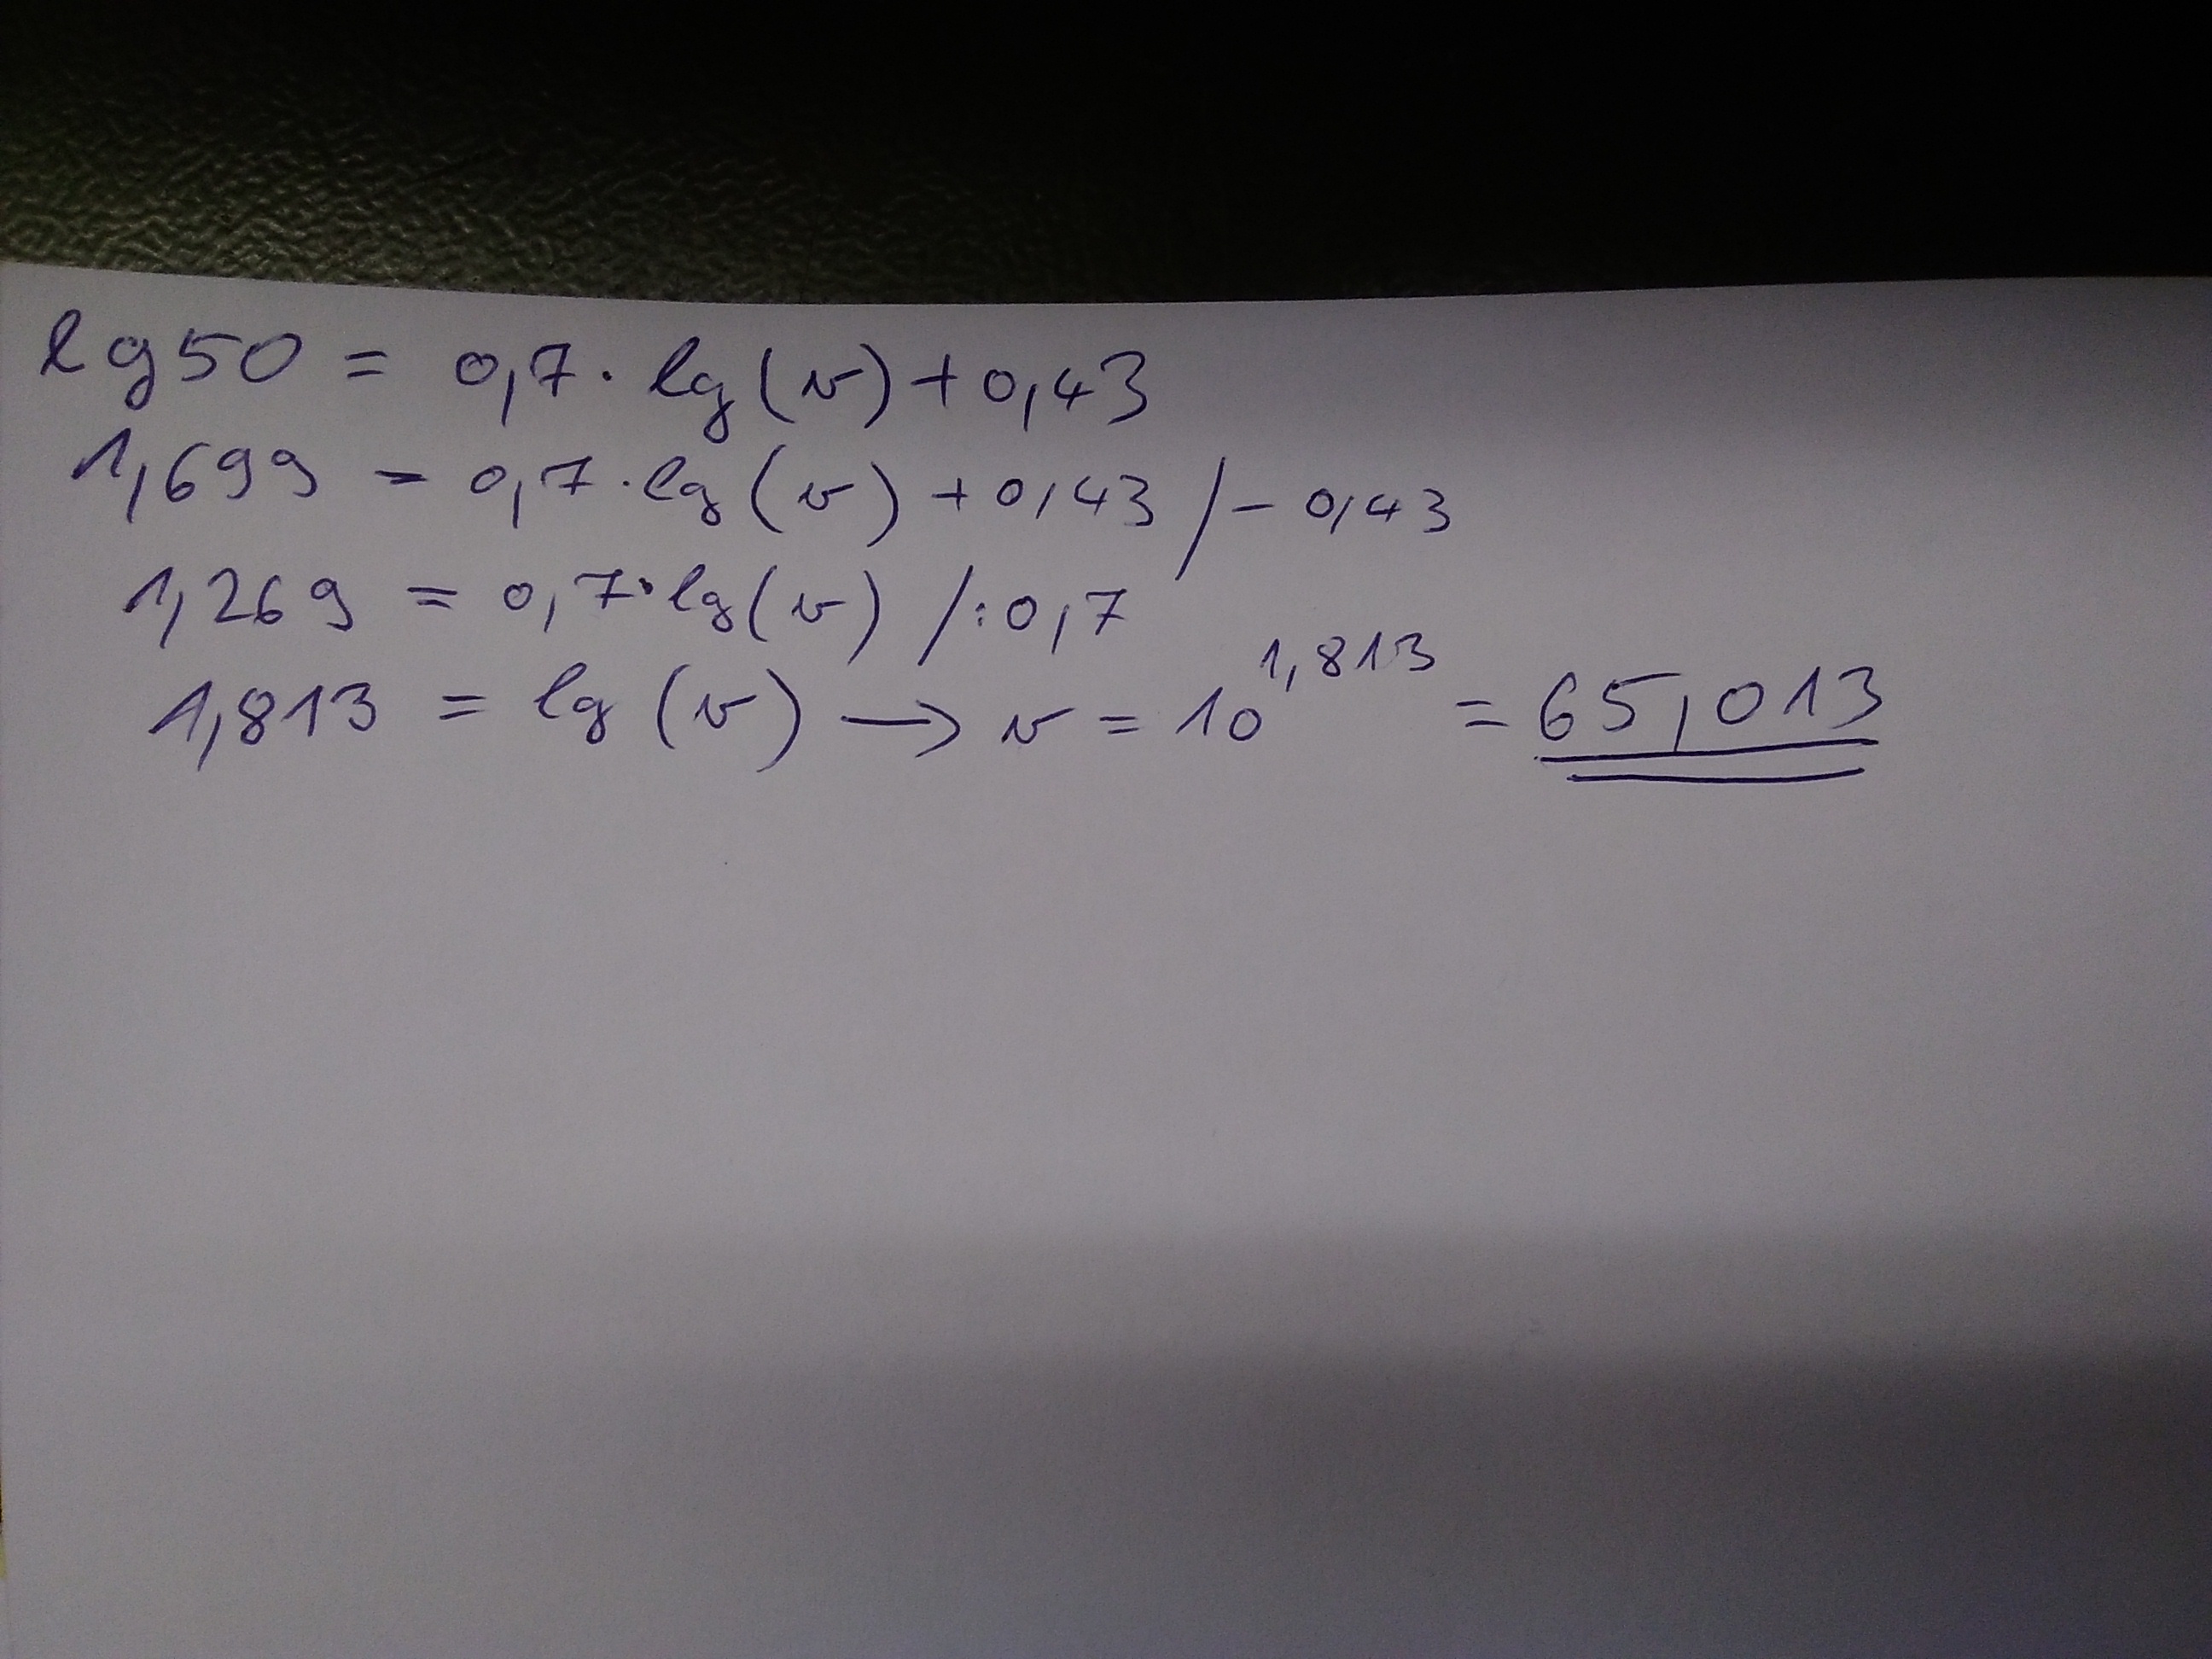 lg50 = 0,7 · lg(v) + 0,43
1,699 = 0,7 · lg(v) + 0,43 / - 0,43
1,269 = 0,7 · lg(v) / : 0,7
1,813 = lg(v) → v = 10^1,813 = 65,013